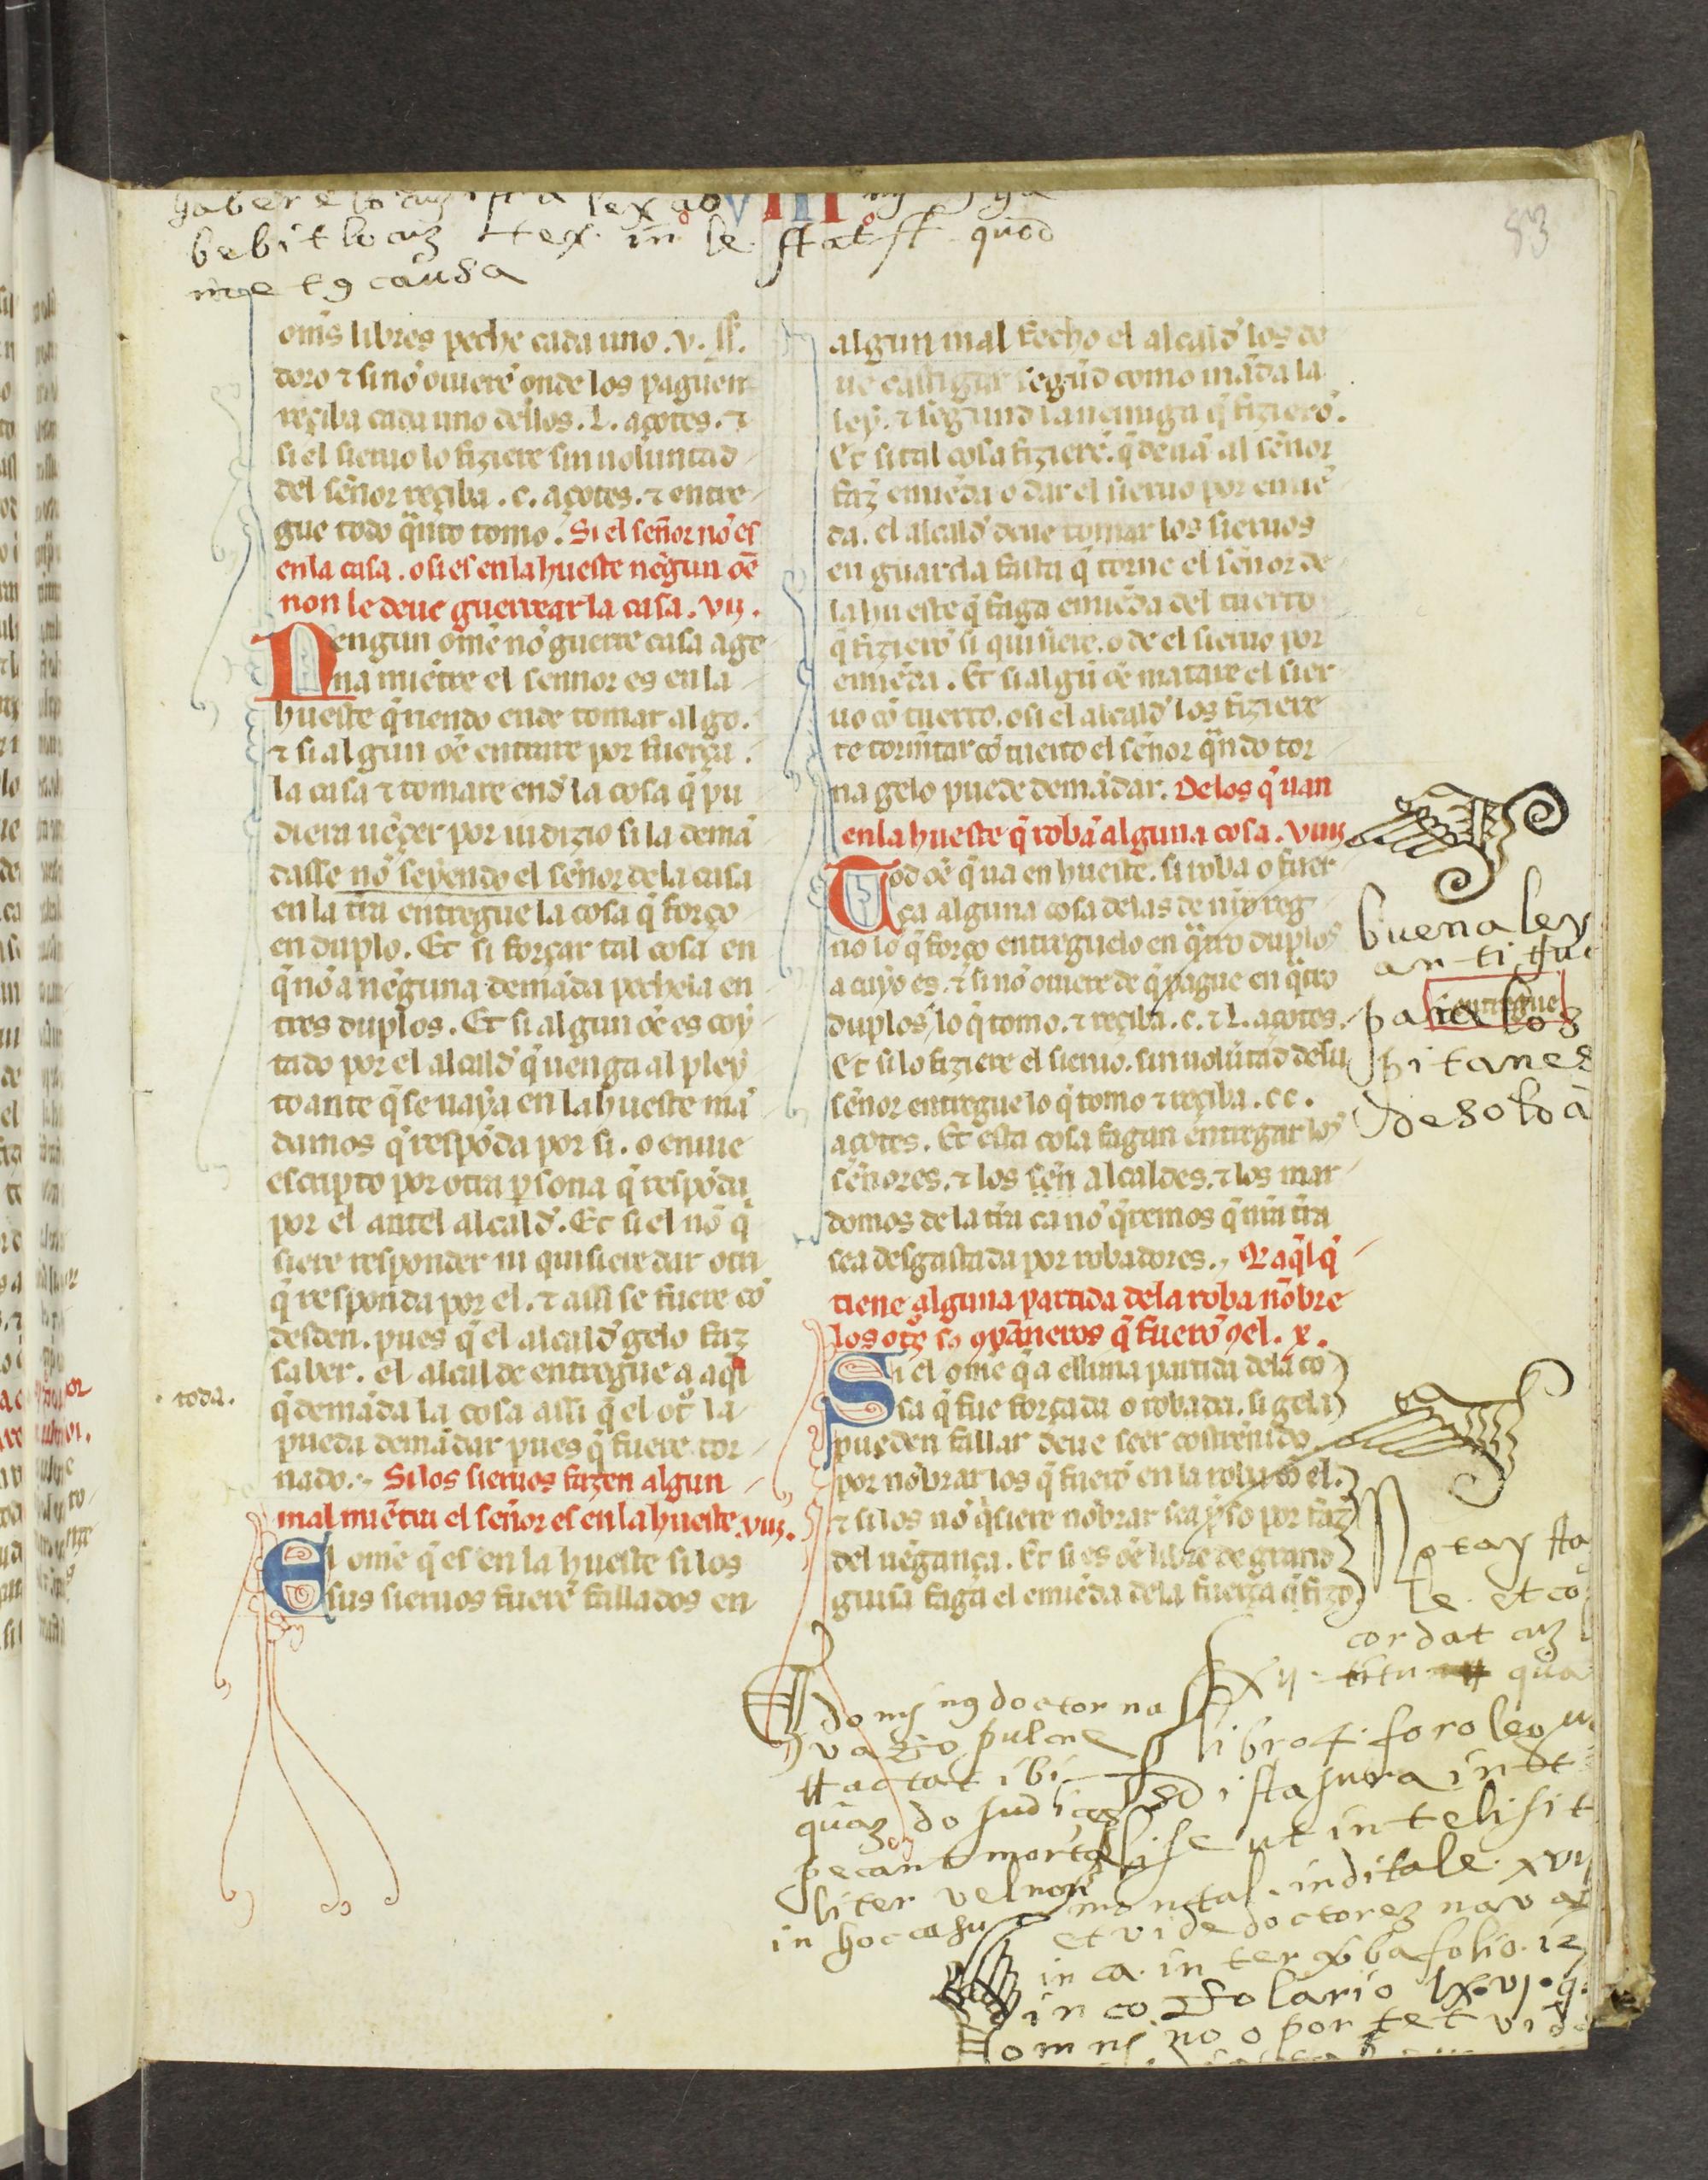 VIII
83
bebit locuz tex. in le. stat ff. quod
causa
om̃s libres peche cada uno .v. ss̃.
doro ⁊ si nõ ouierẽ onde los paguen
reçiba cada uno dellos .L. açotes. ⁊
si el sieruo lo fiziere sin uoluntad
del señor reçiba .c. açotes. ⁊ entre
gue todo q̃nto tomo. Si el señor nõ es
en la casa. o si es en la hueste nẽgun oẽ
non le deue guerrear la casa. vij.
Nengun omẽ nõ guerre casa age
na miẽtre el sennor es en la
hueste q̃riendo ende tomar algo.
⁊ si algun oẽ entrare por fuerça.
la casa ⁊ tomare end̃ la cosa q̃ pu
diera uẽçer por iudizio si la demã
dasse nõ seyendo el señor de la casa
en la tr̃ra entregue la cosa q̃ forço
en duplo. Et si forçar tal cosa en
q̃ nõ a nẽguna demãda pechela en
tres duplos. Et si algun oẽ es coy
tado por el alcald̃ q̃ uenga al pley
to ante q̃ se uaya en la hueste mã
damos q̃ respõda por si. o enuie
escripto por otra ꝑsona q̃ respõda
por el antel alcald̃. Et si el nõ q̃
siere responder ni quisiere dar otri
q̃ responda por el. ⁊ assi se fuere cõ
desden. pues q̃ el alcald̃ gelo faz
saber. el alcalde entregue a aq̃l
toda.
q̃ demãda la cosa assi q̃ el otͦ la
pueda demãdar pues q̃ fuere tor
nado. Si los sieruos fazen algun
mal miẽtra el señor es en la hueste. viij.
El omẽ q̃ es en la hueste si los
sus sieruos fuerẽ fallados en
algun mal fecho el alcald̃ los de
ue castigar segũd como mãda la
ley. ⁊ segund la nemiga q̃ fizierõ.
Et si tal cosa fizierẽ. q̃ deuã al señor
faz̃ emiẽda o dar el sieruo por emiẽ
da. el alcald̃ deue tomar los sieruos
en guarda fasta q̃ torne el señor de
la hueste q̃ faga emiẽda del tuerto
q̃ fizierõ si quisiere. o de el sieruo por
emiẽda. Et si algũ oẽ matare el sier
uo cõ tuerto. o si el alcald̃ los fiziere
tormẽtar cõ tuerto el señor q̃ndo tor
na gelo puede demãdar. De los q̃ uan
en la hueste q̃ robã alguna cosa. viiij
Tod oẽ q̃ ua en hueste. si roba o fuer
ça alguna cosa de las de nr̃o reg
no lo q̃ forço entreguelo en q̃tro duplos
a cuyo es. ⁊ si nõ ouiere de q̃ pague en q̃tro
entregue
duplos lo q̃ tomo. ⁊ reçiba .c. ⁊ L. açotes.
Et si lo fiziere el sieruo. sin uolũtad de su
señor entregue lo q̃ tomo ⁊ reçiba .cc.
açotes. Et esta cosa fagan entregar los
señores. ⁊ los señ alcaldes. ⁊ los mar
domos de la tr̃ra ca nõ q̃remos q̃ nr̃a tr̃ra
sea desgastada por robadores. Q̃ aq̃l q̃
tiene alguna partida de la roba nõbre
los otͦs sͦ 9pañeros q̃ fuerõ 9el. x.
Si el omẽ q̃ a alguna partida de la co
sa q̃ fue forçada o robada. si gela
pueden fallar deue seer costreñido
por nõbrar los q̃ fuerõ en la roba cõ el.
⁊ si los nõ q̃siere nõbrar sea p̃so por faz̃
del uẽgança. Et si es oẽ libre de grand
guisa faga el emiẽda de la fuerça q̃ fizo.
buena ley
para los
pitanes
de solda
Nota
le. et co
cordat cuz
titu qua
libro 4. foro
sed ista jura
ut intelisit
doctor na
varo pulcre
tractat ibi
quazdo judices
pecant morta
liter vel non
in hoc casu
et vide doctorez nav
in ca. inter